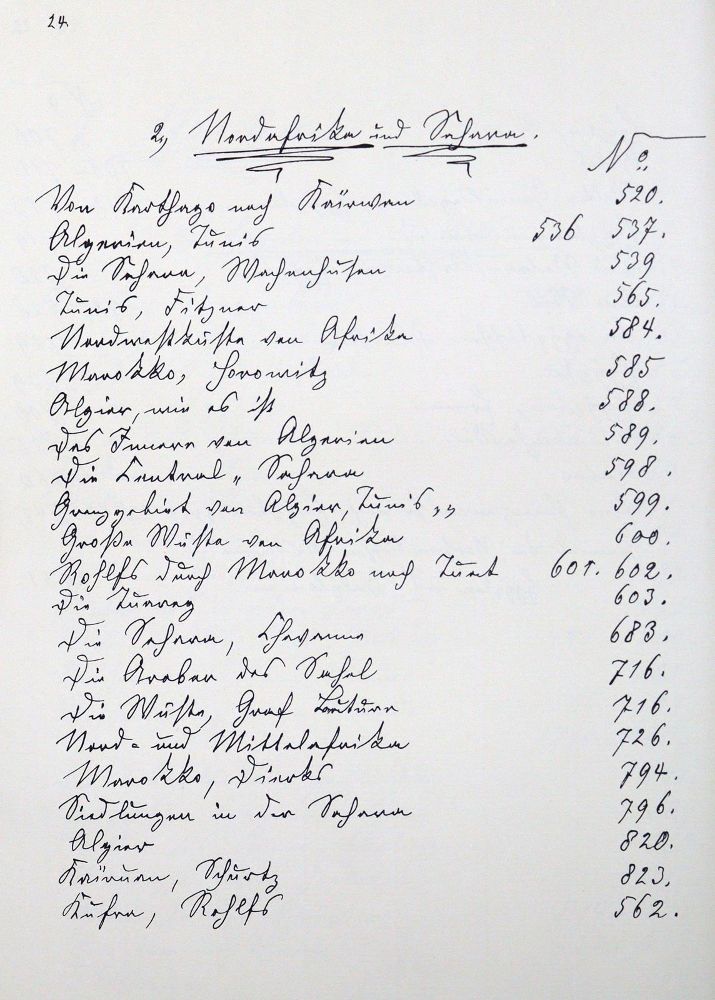 24.
2., Nordafrika und Sahara.
No
Von Karthago nach Kaïrwan 520.
Algerien, Tunis 536 537.
Die Sahara, Wachenhusen 539
Tunis, Fitzner 565.
Nordwestküste von Afrika 584.
Marokko, Horowitz 585
Algier, wie es ist 588.
Das Innere von Algerien 589.
Die Central " Sahara 598.
Grenzgebiet von Algier, Tunis " 599.
Große Wüste von Afrika 600.
Rohlfs durch Marokko nach Tuat 601. 602.
Die Tuareg 603.
Die Sahara, Chavanne 683.
Die Araber des Sahel 716.
Die Wüste, Graf 716.
Nord- und Mittelafrika 726.
Marokko, Diercks 794.
Siedlungen in der Sahara 796.
Algier 820.
Kaïruan, Schurtz 823.
Kufra, Rohlfs 562.